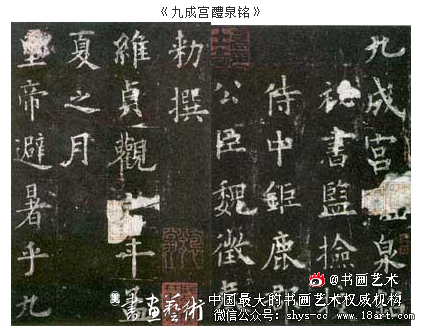 《九成宫醴泉铭》
九成宮泉
書監撿
侍中鉅鹿郡
公臣魏徵
勑撰
維貞觀年孟
夏之月
皇帝避暑乎九
@书画艺术
書画藝術 中国最大的书画艺术权威机构
微信公众号: shys-cc www.18art.com